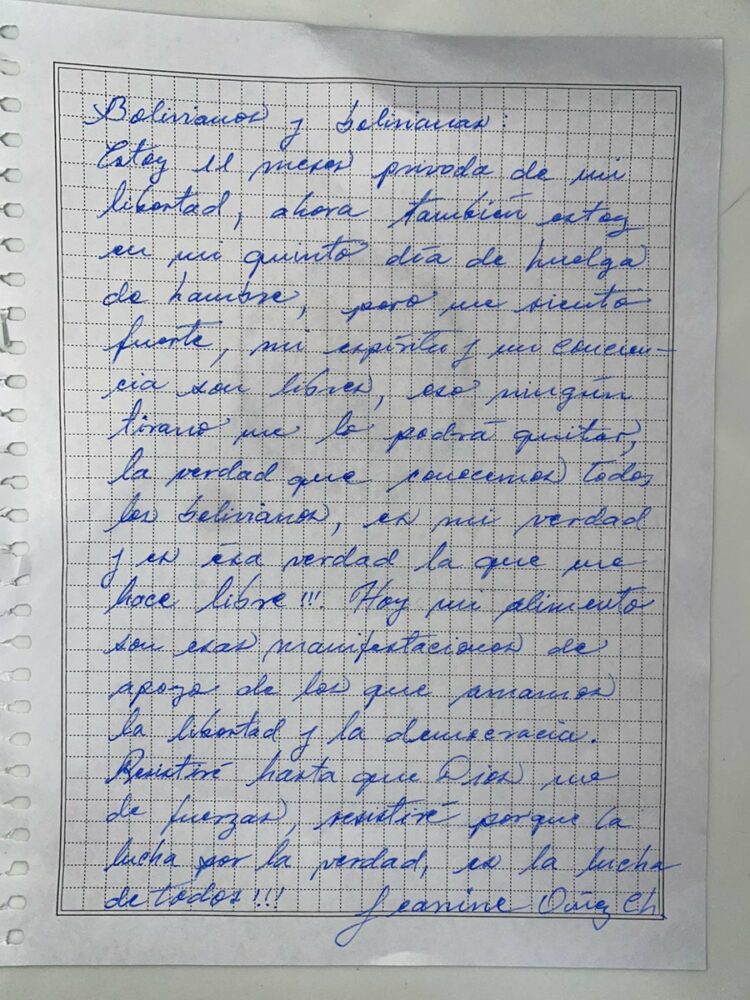 Bolivianos y bolivianas:
Estoy 11 meses privada de mi
libertad, ahora también estoy
en mi quinto día de huelga
de hambre, pero me siento
fuerte, mi espíritu y mi concien-
cia son libres, eso ningún
tirano me lo podrá quitar,
la verdad que conocemos todos
los bolivianos, es mi verdad
y es ésa verdad la que me
hace libre!!! Hoy mi alimento
son esas manifestaciones de
apoyo de los que amamos
la libertad y la democracia.
Resistiré hasta que Dios me
de fuerzas, resistiré porque la
lucha por la verdad, es la lucha
de todos!!! Jeanine Añez Ch.